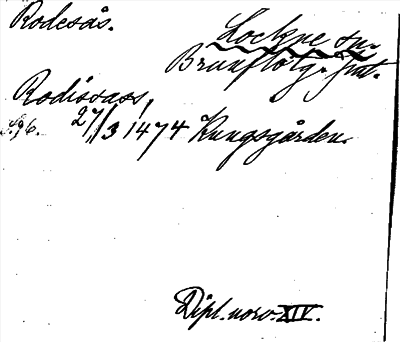 Rodesås.
Lockne sn.
Brunflotg. Jmt.
Rodissaas,
S. 96. 27/3 1474 Kungsgården.
Dipl. norv. XIV.